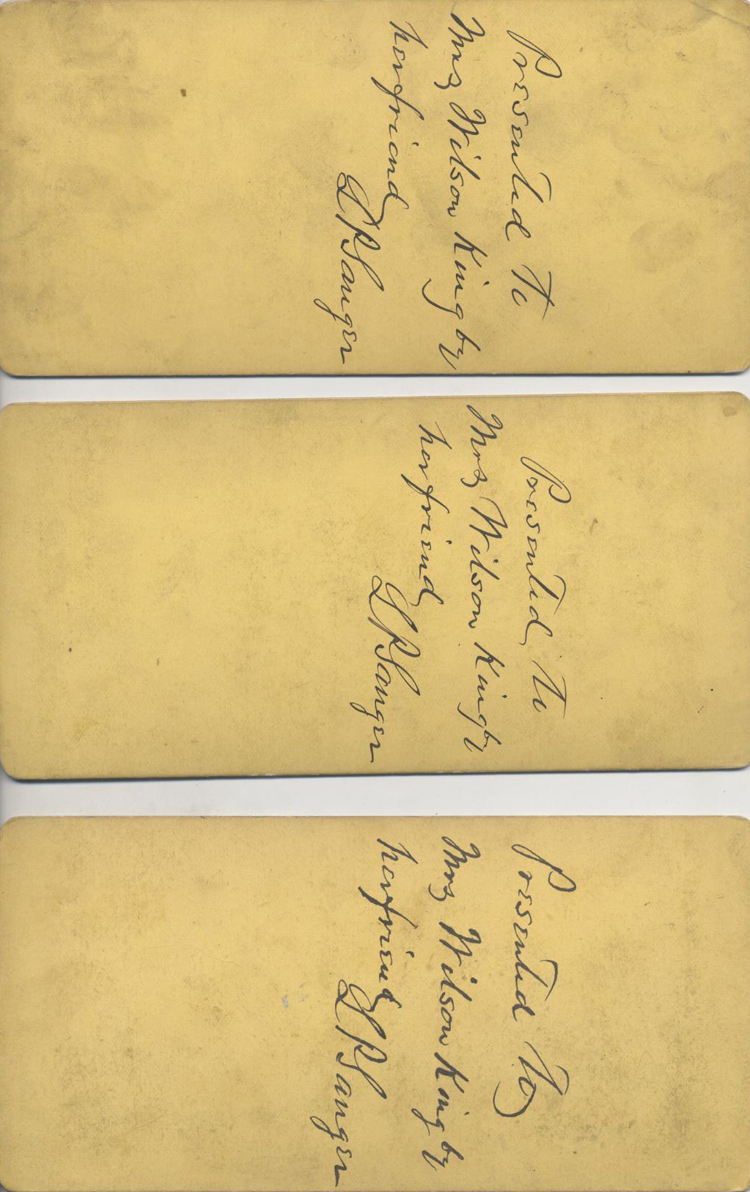 Presented to
Mrs Wilson King by
her friend
L P Sanger
Presented to
Mrs Wilson King by
her friend
L P Sanger
Presented to
Mrs Wilson King by
her friend
L P Sanger